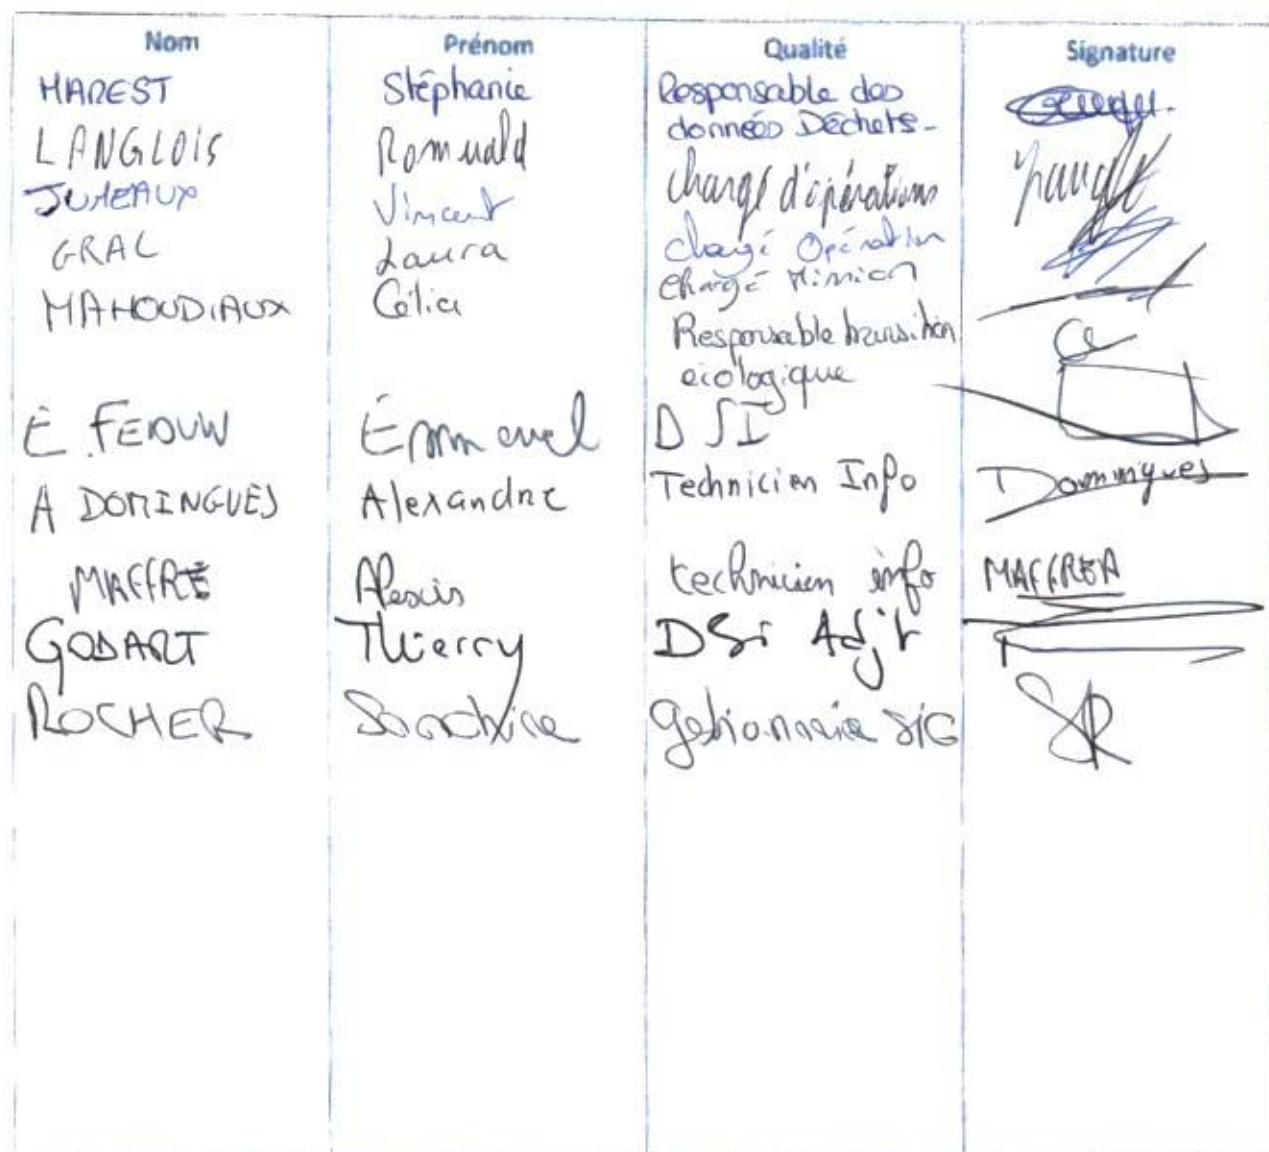 Nom Prénom Qualité Signature
MAREST Stéphanie Responsable des
données Déchets-
LANGLOIS Romuald chargé d'opérations
JUMEAUX Vincent chargé Opération
GRAL Laura chargé Mission
MAHOUDIAUX Célia Responsable transition
ecologique
E. FEDUW Emmanuel DSI
A DOMINGUES Alexandre Technicien Info Domingues
MAFFRE Alexis technicien info MAFFRE A
GODART Thierry DSi Adjt
ROCHER Sandrine gestionnaire SIG SR